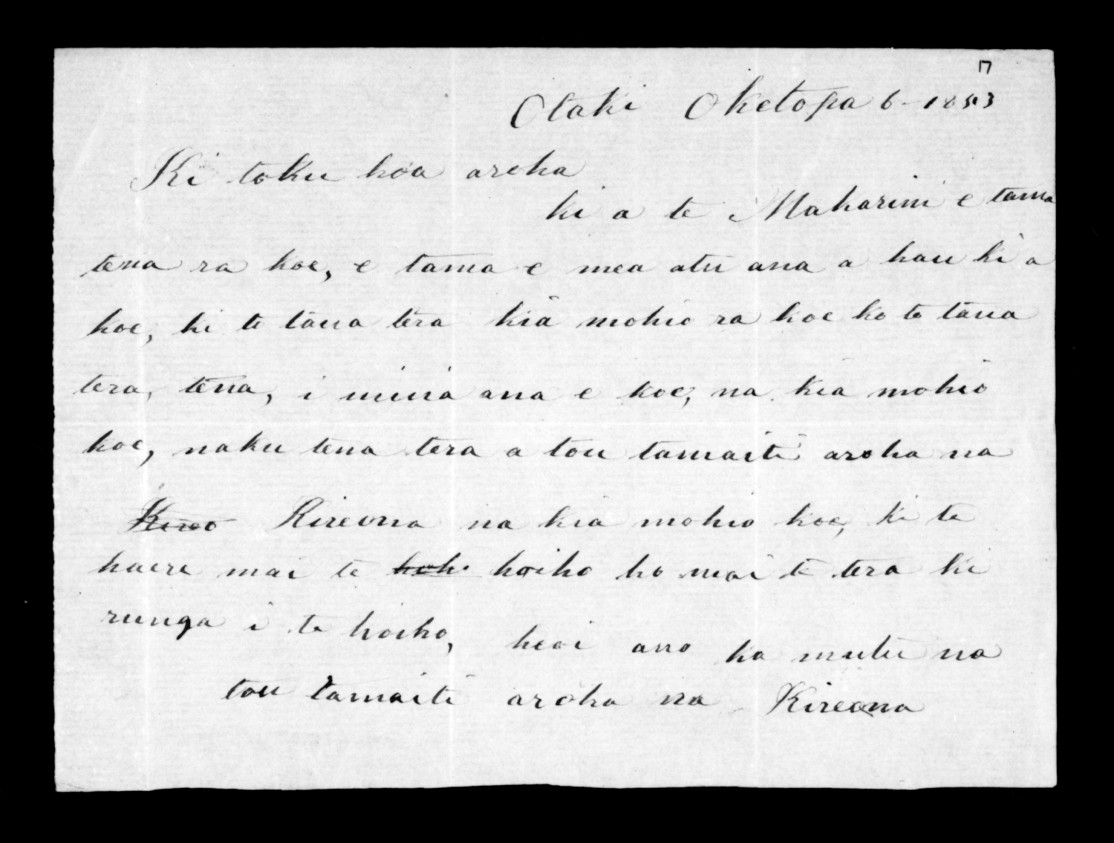 17
Otaki Oketopa 6-1853
Ki toku hoa aroha
ki a te Makarini e tama
tena ra koe, e tama e mea atu ana a hau ki a
koe, ki te taua tera kia mohio ra koe ko te taua
tera, tena, i inia ana e koe, na kia mohio
koe, naku tena tera a tou tamaiti aroha na
Kireona na kia mohio koe, ki te
haere mai te hoiho ho mai te tera ki
runga i te hoiho, heoi ano ka mutu na
tou tamaiti aroha na Kireona